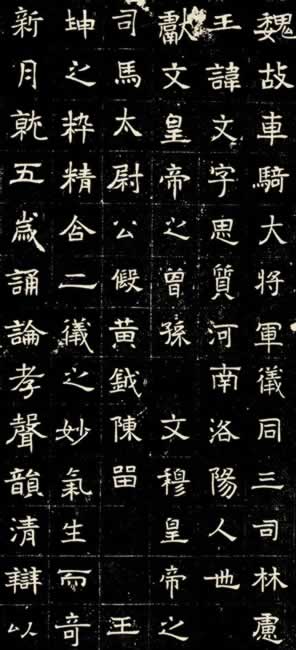 魏故車騎大將軍儀同三司林慮
王諱文字思質河南洛陽人也
獻文皇帝之曾孫　文穆皇帝之
司馬太尉公假黃鉞陳㽞　王
坤之粹精含二儀之妙氣生而奇
新月就五歲誦論孝聲韻清辯以